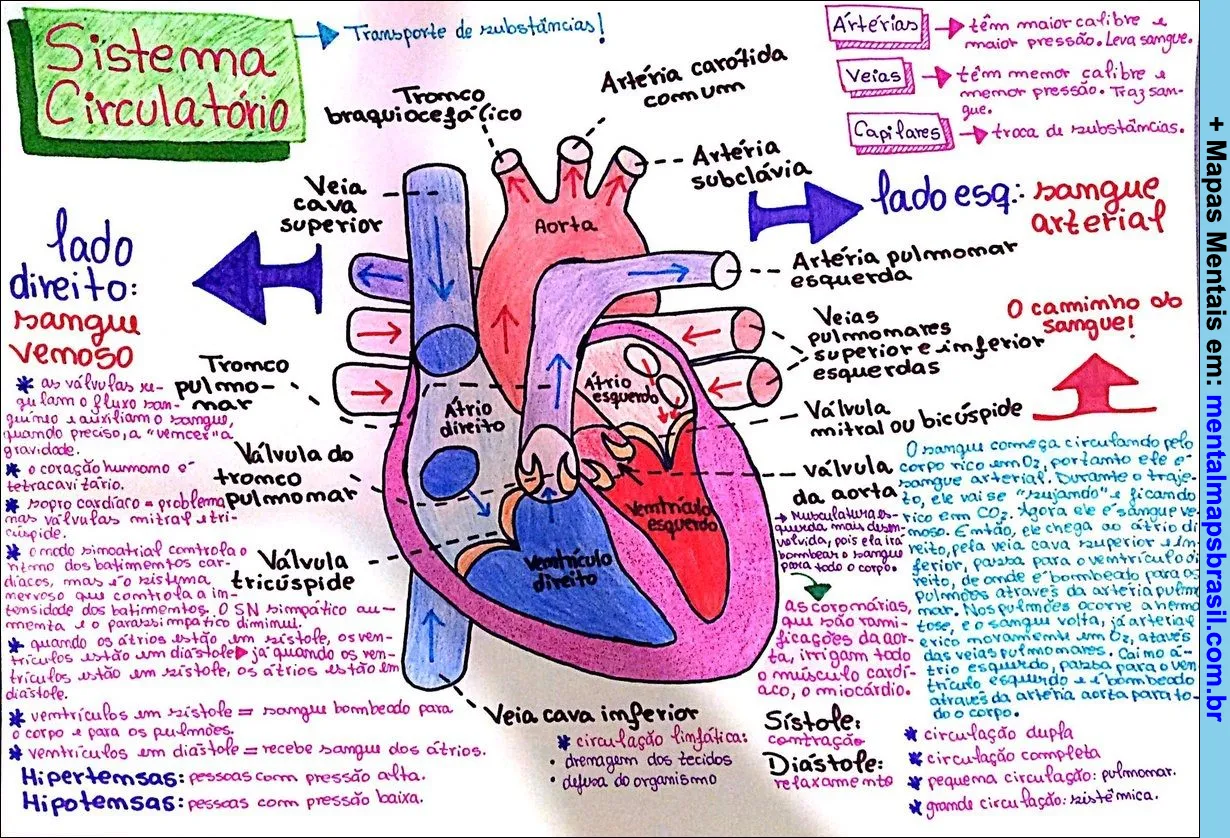 Sistema
Circulatório
Transporte de substâncias!
Artérias
têm maior calibre e
maior pressão. Leva sangue.
Veias
têm menor calibre e
menor pressão. Traz san-
gue.
Capilares
troca de substâncias.
Tronco
braquiocefálico
Artéria carótida
comum
Artéria
subclávia
Veia
cava
superior
Aorta
lado
direito:
sangue
venoso
lado esq: sangue
arterial
Artéria pulmonar
esquerda
Veias
pulmonares
superior e inferior
esquerdas
O caminho do
sangue!
Tronco
pulmo-
nar
Átrio
direito
Átrio
esquerdo
Válvula
mitral ou bicúspide
Válvula do
tronco
pulmonar
válvula
da aorta
Ventrículo
esquerdo
Ventrículo
direito
Válvula
tricúspide
Veia cava inferior
* as válvulas re-
gulam o fluxo san-
guíneo e auxiliam o sangue,
quando preciso, a "vencer" a
gravidade.
* o coração humano é
tetracavitário.
* sopro cardíaco = problema
nas válvulas mitral e tri-
cúspide.
* o nodo sinoatrial controla o
ritmo dos batimentos car-
díacos, mas é o sistema
nervoso que controla a in-
tensidade dos batimentos. O SN simpático au-
menta e o parassimpático diminui.
* quando os átrios estão em sístole, os ven-
trículos estão em diástole já quando os ven-
trículos estão em sístole, os átrios estão em
diástole.
* ventrículos em sístole = sangue bombeado para
o corpo e para os pulmões.
* ventrículos em diástole = recebe sangue dos átrios.
Hipertensas: pessoas com pressão alta.
Hipotensas: pessoas com pressão baixa.
* circulação linfática:
• drenagem dos tecidos
• defesa do organismo
→ musculatura es-
querda mais desen-
volvida, pois ela irá
bombear o sangue
para todo o corpo.
as coronárias,
que são rami-
ficações da aor-
ta, irrigam todo
o músculo cardí-
aco, o miocárdio.
Sístole:
contração
Diástole:
relaxamento
O sangue começa circulando pelo
corpo rico em O2, portanto ele é
sangue arterial. Durante o traje-
to, ele vai se "sujando" e ficando
rico em CO2. Agora ele é sangue ve-
noso. Então, ele chega ao átrio di
reito, pela veia cava superior e in
ferior, passa para o ventrículo di
reito, de onde é bombeado para os
pulmões através da artéria pulmo
nar. Nos pulmões ocorre a hema
tose, e o sangue volta, já arterial
e rico novamente em O2, através
das veias pulmonares. Cai no á-
trio esquerdo, passa para o ven
trículo esquerdo e é bombeado
através da artéria aorta para to-
do o corpo.
* circulação dupla
* circulação completa
* pequena circulação: pulmonar.
* grande circulação: sistêmica.
+ Mapas Mentais em: mentalmapsbrasil.com.br